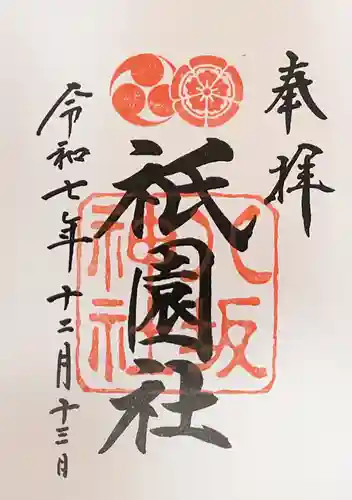 奉拝
八坂
神社
祇園社
令和七年十二月十三日